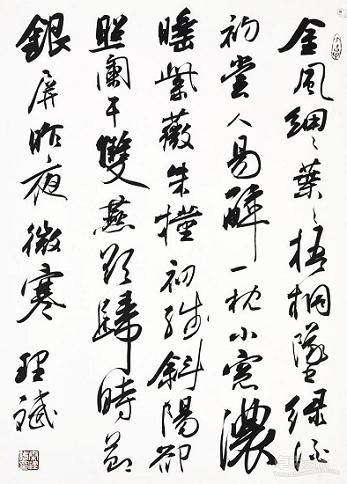 金風細〻葉〻梧桐墜綠酒
初嘗人易醉一枕小窓濃
睡紫薇朱槿初殘斜陽卻
照闌干雙燕欲歸時節
銀屏昨夜微寒 理斌